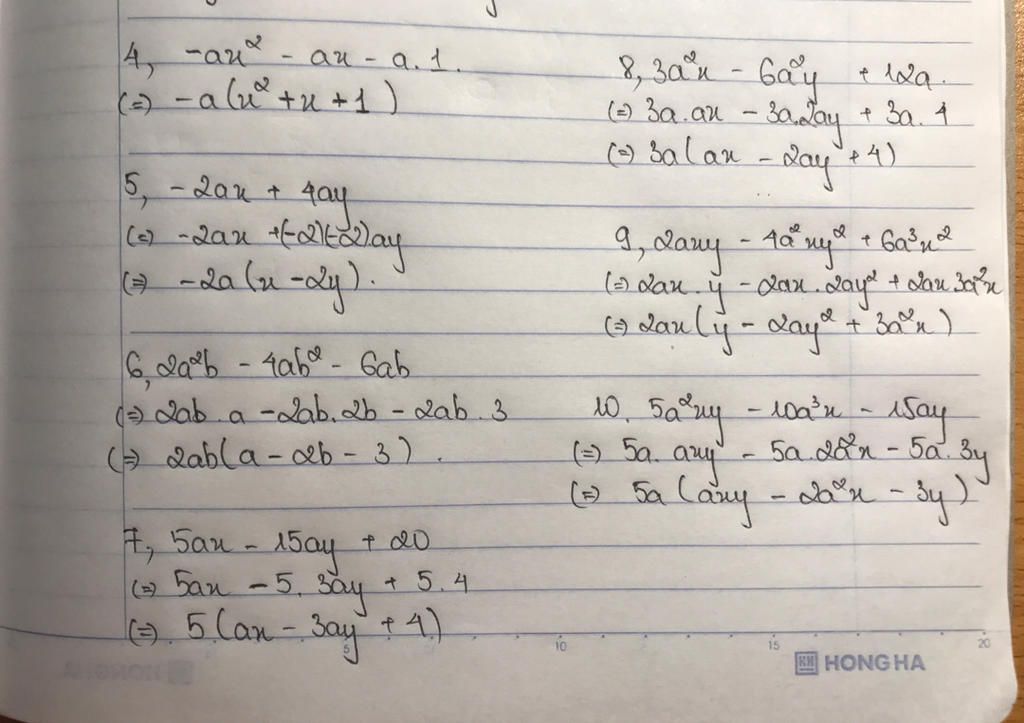 4, -ax² - ax - a.1.
(=) -a(x² + x + 1)
5, -2ax + 4ay
(=) -2ax +(-2)(-2)ay
(=) -2a(x - 2y).
6, 2a²b - 4ab² - 6ab
(=) 2ab.a - 2ab.2b - 2ab.3
(=) 2ab(a - 2b - 3).
7, 5ax - 15ay + 20
(=) 5ax - 5.3ay + 5.4
(=) 5(ax - 3ay + 4)
8, 3a²x - 6a²y + 12a.
(=) 3a.ax - 3a.2ay + 3a.4
(=) 3a(ax - 2ay + 4)
9, 2axy - 4a²xy² + 6a³x²
(=) 2ax.y - 2ax.2ay² + 2ax.3a²x
(=) 2ax(y - 2ay² + 3a²x)
10. 5a²xy - 10a³x - 15ay
(=) 5a.axy - 5a.2a²x - 5a.3y
(=) 5a(axy - 2a²x - 3y)
5 10 15 20
KH HONG HA